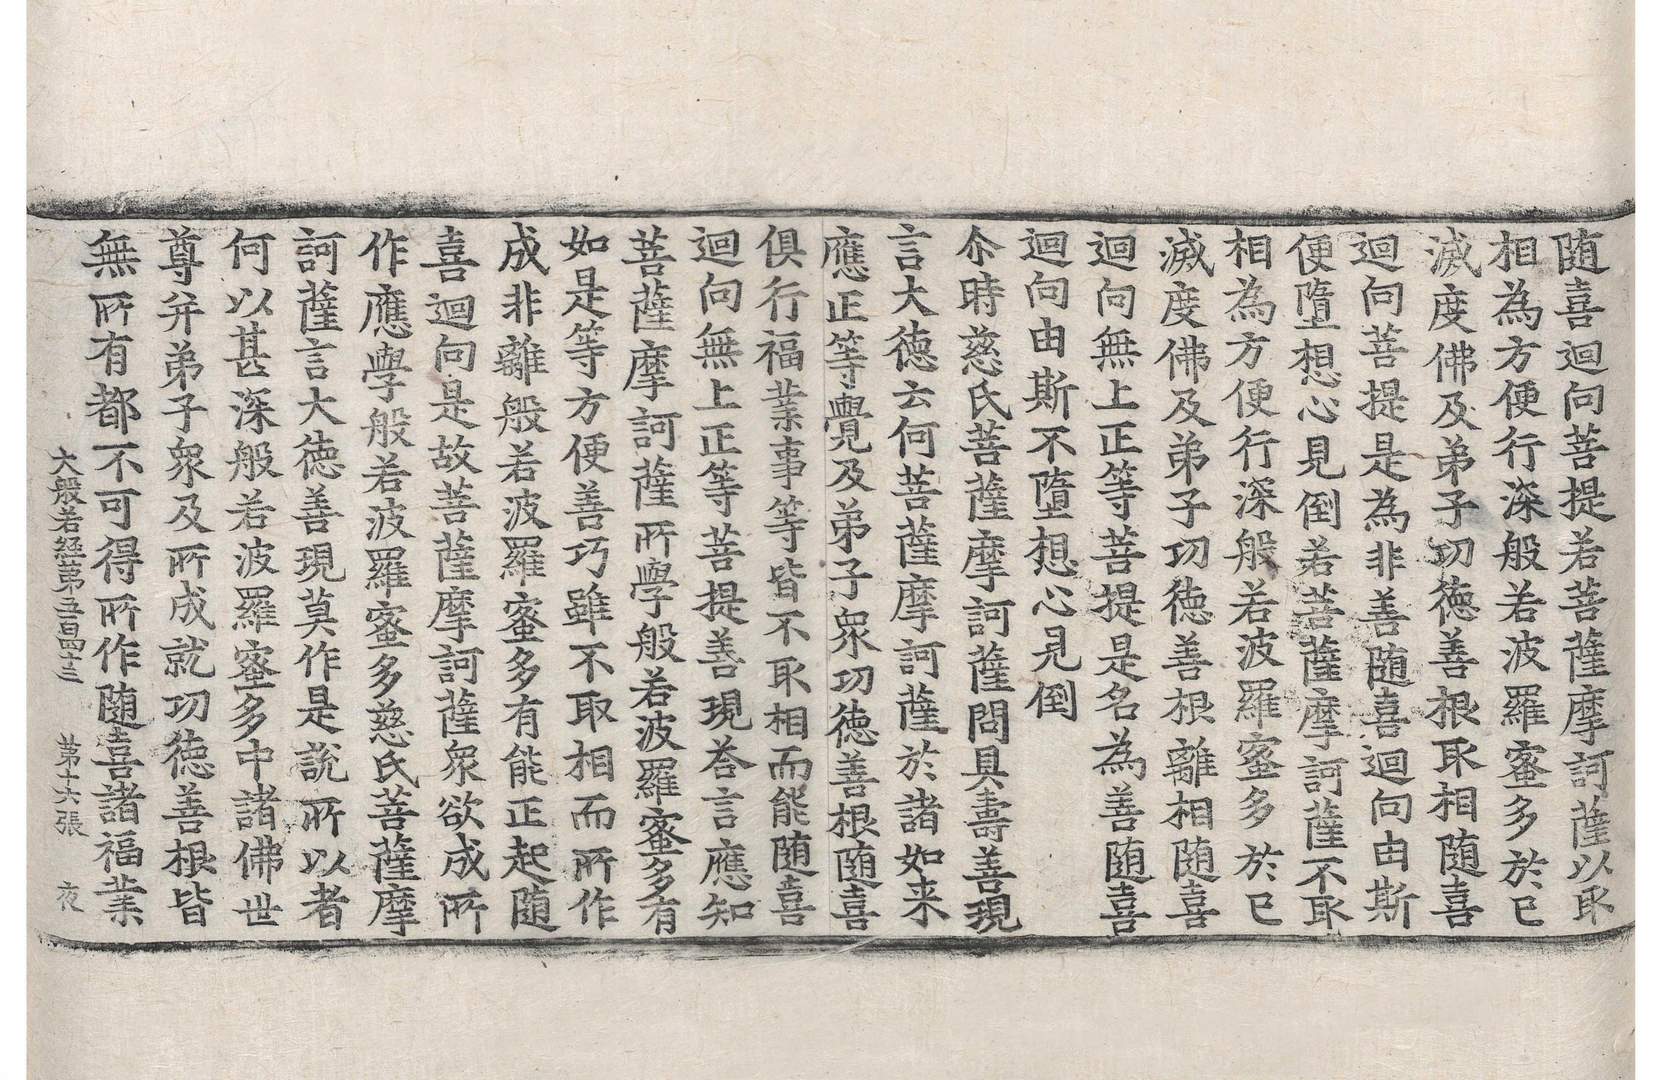 随喜迴向菩提若菩薩摩訶薩以取
相為方便行深般若波羅蜜多於已
滅度佛及弟子功徳善根取相随喜
迴向菩提是為非善随喜迴向由斯
便墮想心見倒若菩薩摩訶薩不取
相為方便行深般若波羅蜜多於已
滅度佛及弟子功徳善根離相随喜
迴向無上正等菩提是名為善随喜
迴向由斯不墮想心見倒
尒時慈氏菩薩摩訶薩問具壽善現
言大徳云何菩薩摩訶薩於諸如来
應正等覺及弟子衆功徳善根随喜
俱行福業事等皆不取相而能随喜
迴向無上正等菩提善現荅言應知
菩薩摩訶薩所學般若波羅蜜多有
如是等方便善巧雖不取相而所作
成非離般若波羅蜜多有能正起随
喜迴向是故菩薩摩訶薩衆欲成所
作應學般若波羅蜜多慈氏菩薩摩
訶薩言大徳善現莫作是說所以者
何以甚深般若波羅蜜多中諸佛世
尊并弟子衆及所成就功徳善根皆
無所有都不可得所作随喜諸福業
大般若経苐五百四十三 苐十六張 夜